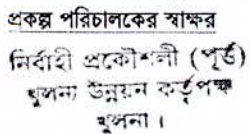 প্রকল্প পরিচালকের স্বাক্ষর
নির্বাহী প্রকৌশলী (পূর্ত)
খুলনা উন্নয়ন কর্তৃপক্ষ
খুলনা।